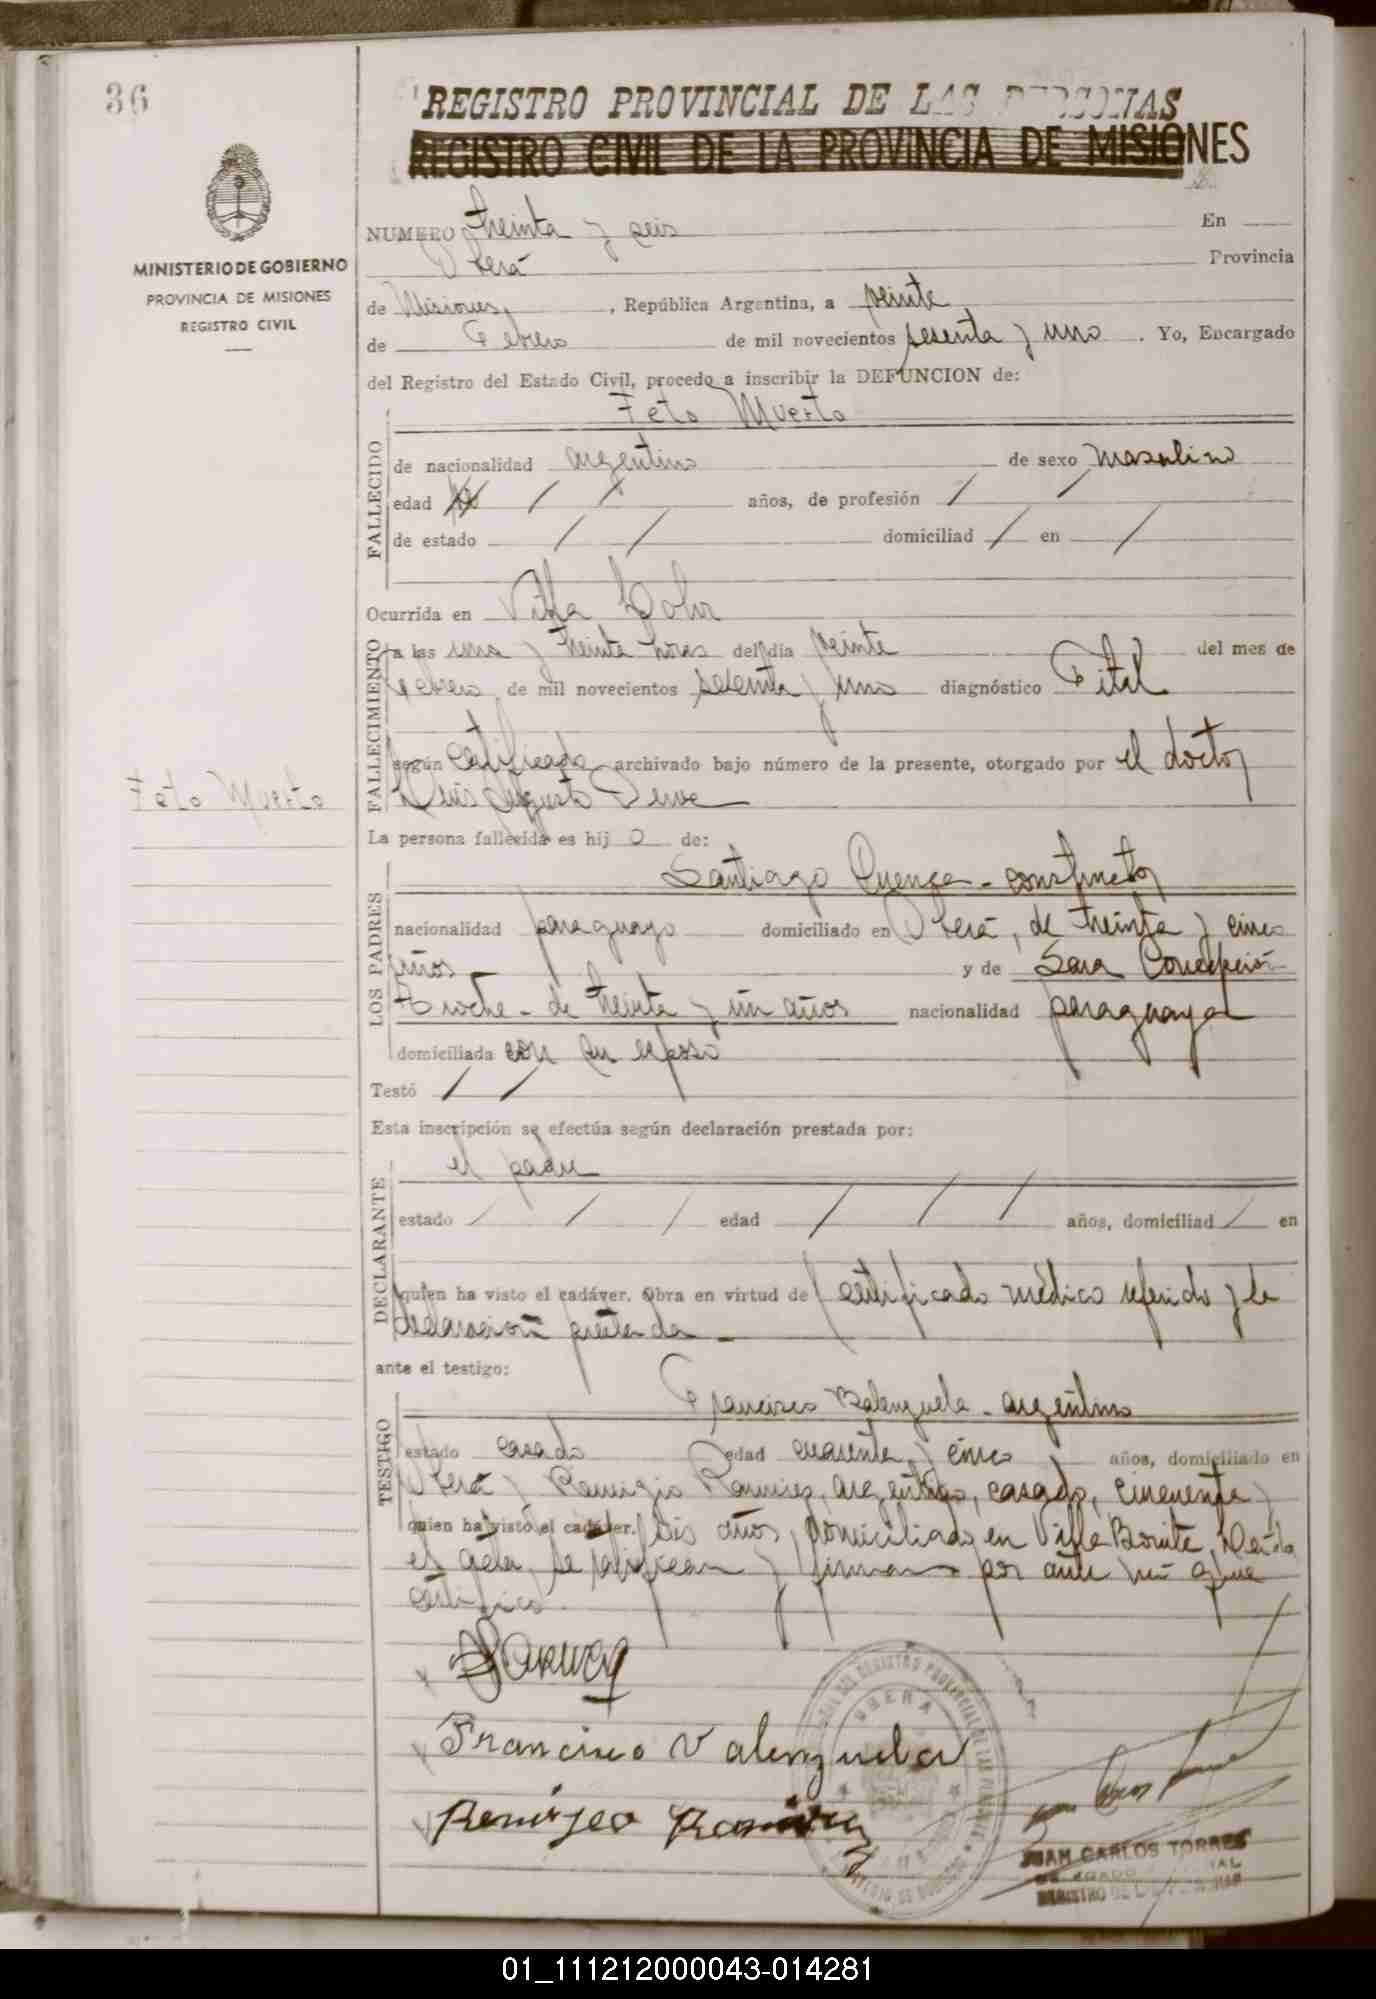 36
REGISTRO PROVINCIAL DE LAS PERSONAS
REGISTRO CIVIL DE LA PROVINCIA DE MISIONES
MINISTERIO DE GOBIERNO
PROVINCIA DE MISIONES
REGISTRO CIVIL
NUMERO treinta y seis En
Oberá Provincia
de Misiones, , República Argentina, a veinte
de Febrero de mil novecientos sesenta y uno . Yo, Encargado
del Registro del Estado Civil, procedo a inscribir la DEFUNCION de:
Feto Muerto
FALLECIDO
de nacionalidad argentino de sexo masculino
edad / / años, de profesión / /
de estado / / domiciliad / en /
Ocurrida en Villa
FALLECIMIENTO
a las una y treinta horas del día veinte del mes de
Febrero de mil novecientos sesenta y uno diagnóstico
según certificado archivado bajo número de la presente, otorgado por el doctor
Luis Augusto
Feto Muerto
La persona fallecida es hij o de:
LOS PADRES
Santiago Cuenca - constructor
nacionalidad paraguayo domiciliado en Oberá, de treinta y cinco
años - y de Sara Concepción
- de treinta y un años nacionalidad paraguaya
domiciliada con su esposo
Testó / /
Esta inscripción se efectúa según declaración prestada por:
DECLARANTE
el padre
estado / / / edad / / / años, domiciliad / en
quien ha visto el cadáver. Obra en virtud de certificado médico referido y la
declaración prestada -
ante el testigo:
TESTIGO
Francisco Balenzuela - argentino
estado casado edad cuarenta y cinco años, domiciliado en
Oberá y Remigio Ramirez, argentino, casado, cincuenta y
quien ha visto el cadáver. seis años, domiciliado en Villa Bonita. Leída
el acta, se ratifican y firman por ante mi que
certifico.
Francisco Valenzuela
Remigeo Ramirez
OBERA
JUAN CARLOS TORRES
01_111212000043-014281